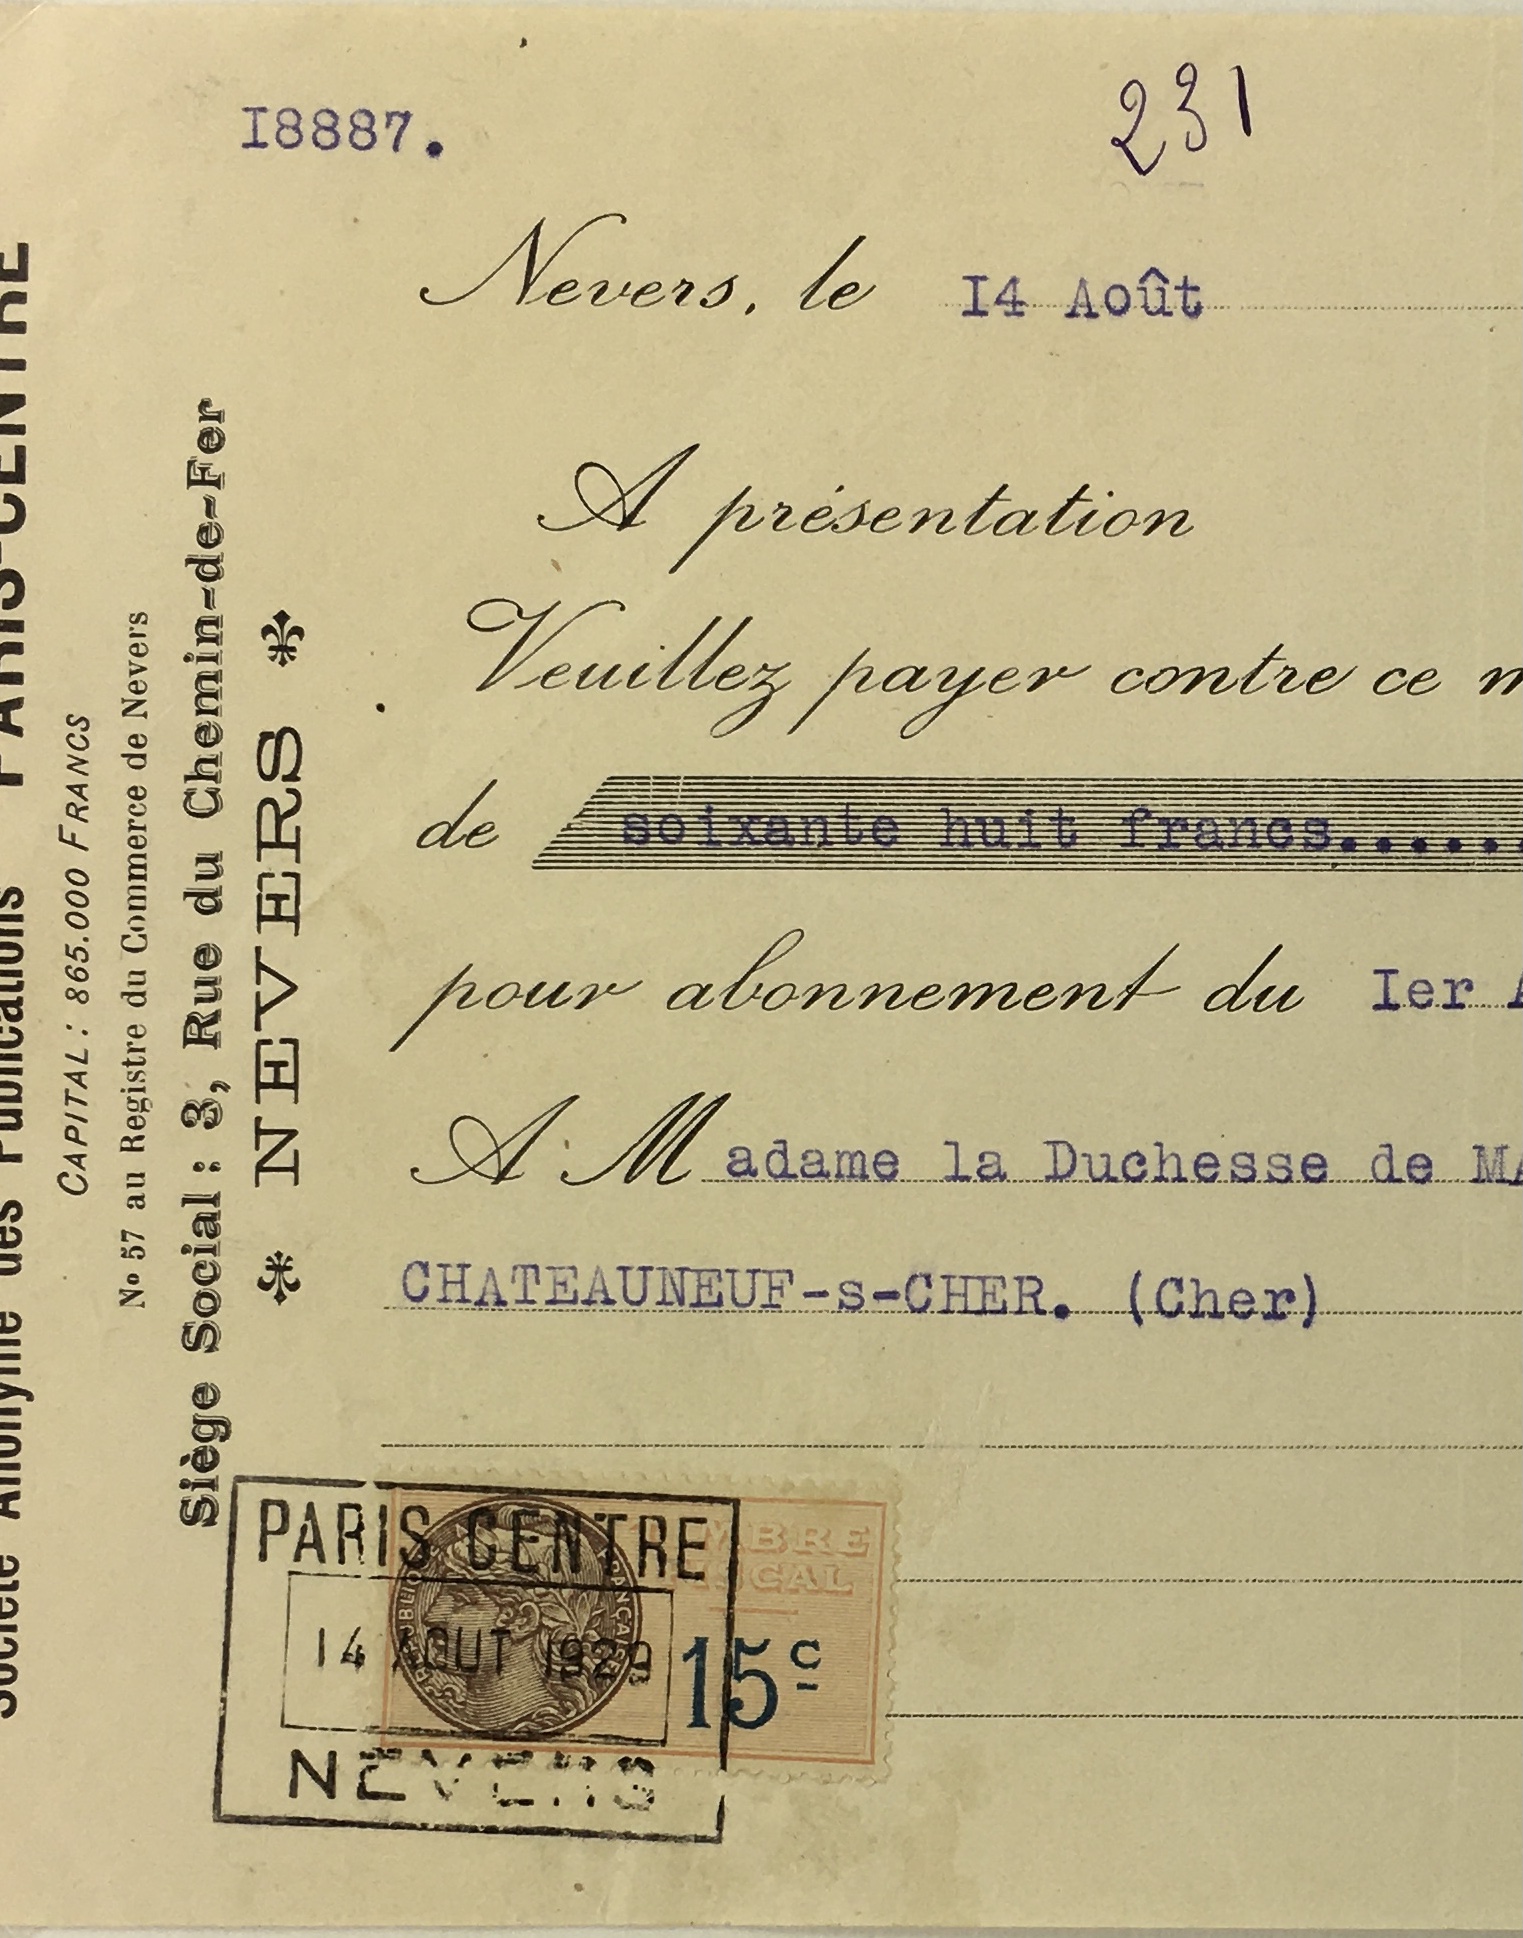 I8887.
231
Nevers, le I4 Août
A présentation
Veuillez payer contre ce
de soixante huit francs......
pour abonnement du Ier
A M adame la Duchesse de
CHATEAUNEUF-s-CHER. (Cher)
Société Anonyme des Publications PARIS-CENTRE
CAPITAL : 865.000 FRANCS
No 57 au Registre du Commerce de Nevers
Siège Social : 3, Rue du Chemin-de-Fer
NEVERS
PARIS CENTRE
14 AOUT 1929
NEVERS
15c